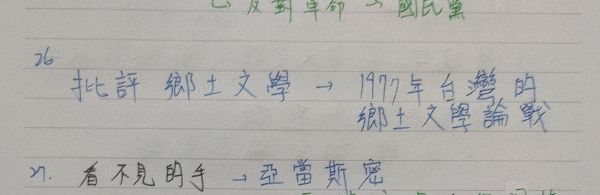 反對革命 → 國民黨
26
批評鄉土文學 → 1977年台灣的
鄉土文學論戰
27. 看不見的手 → 亞當斯密